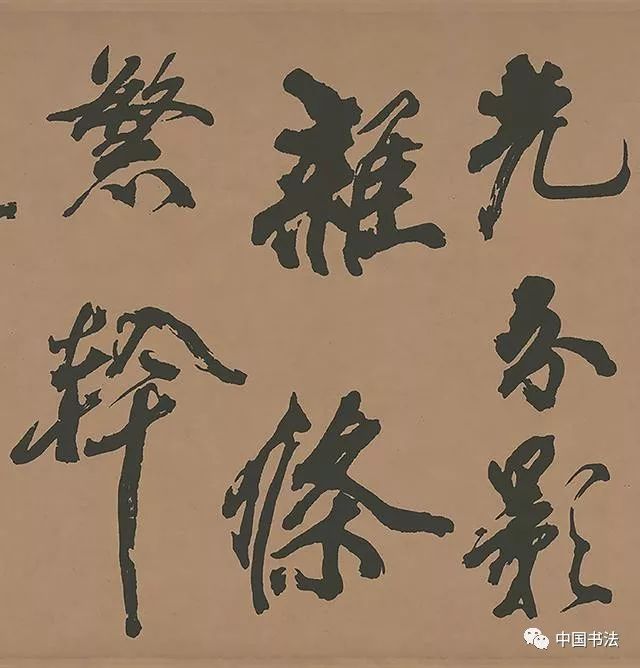 光分影
雜條
繁幹
中国书法